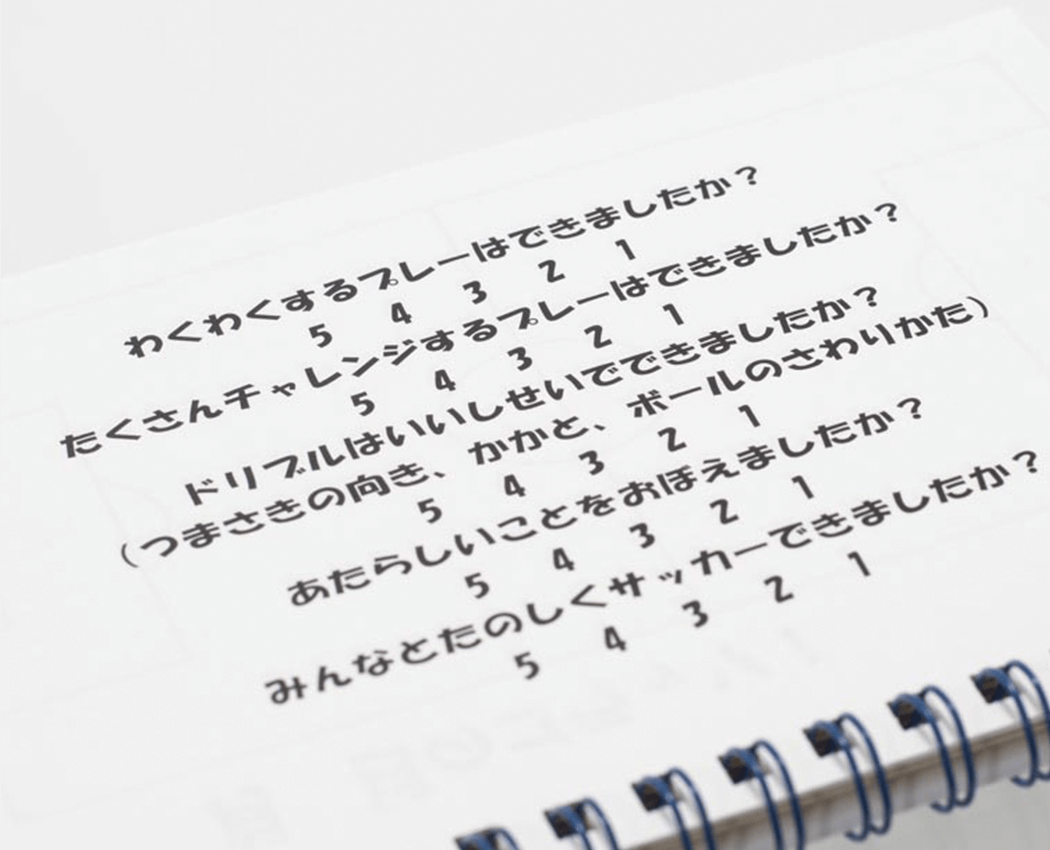 わくわくするプレーはできましたか？
5 4 3 2 1
たくさんチャレンジするプレーはできましたか？
5 4 3 2 1
ドリブルはいいしせいでできましたか？
（つまさきの向き、かかと、ボールのさわりかた）
5 4 3 2 1
あたらしいことをおぼえましたか？
5 4 3 2 1
みんなとたのしくサッカーできましたか？
5 4 3 2 1